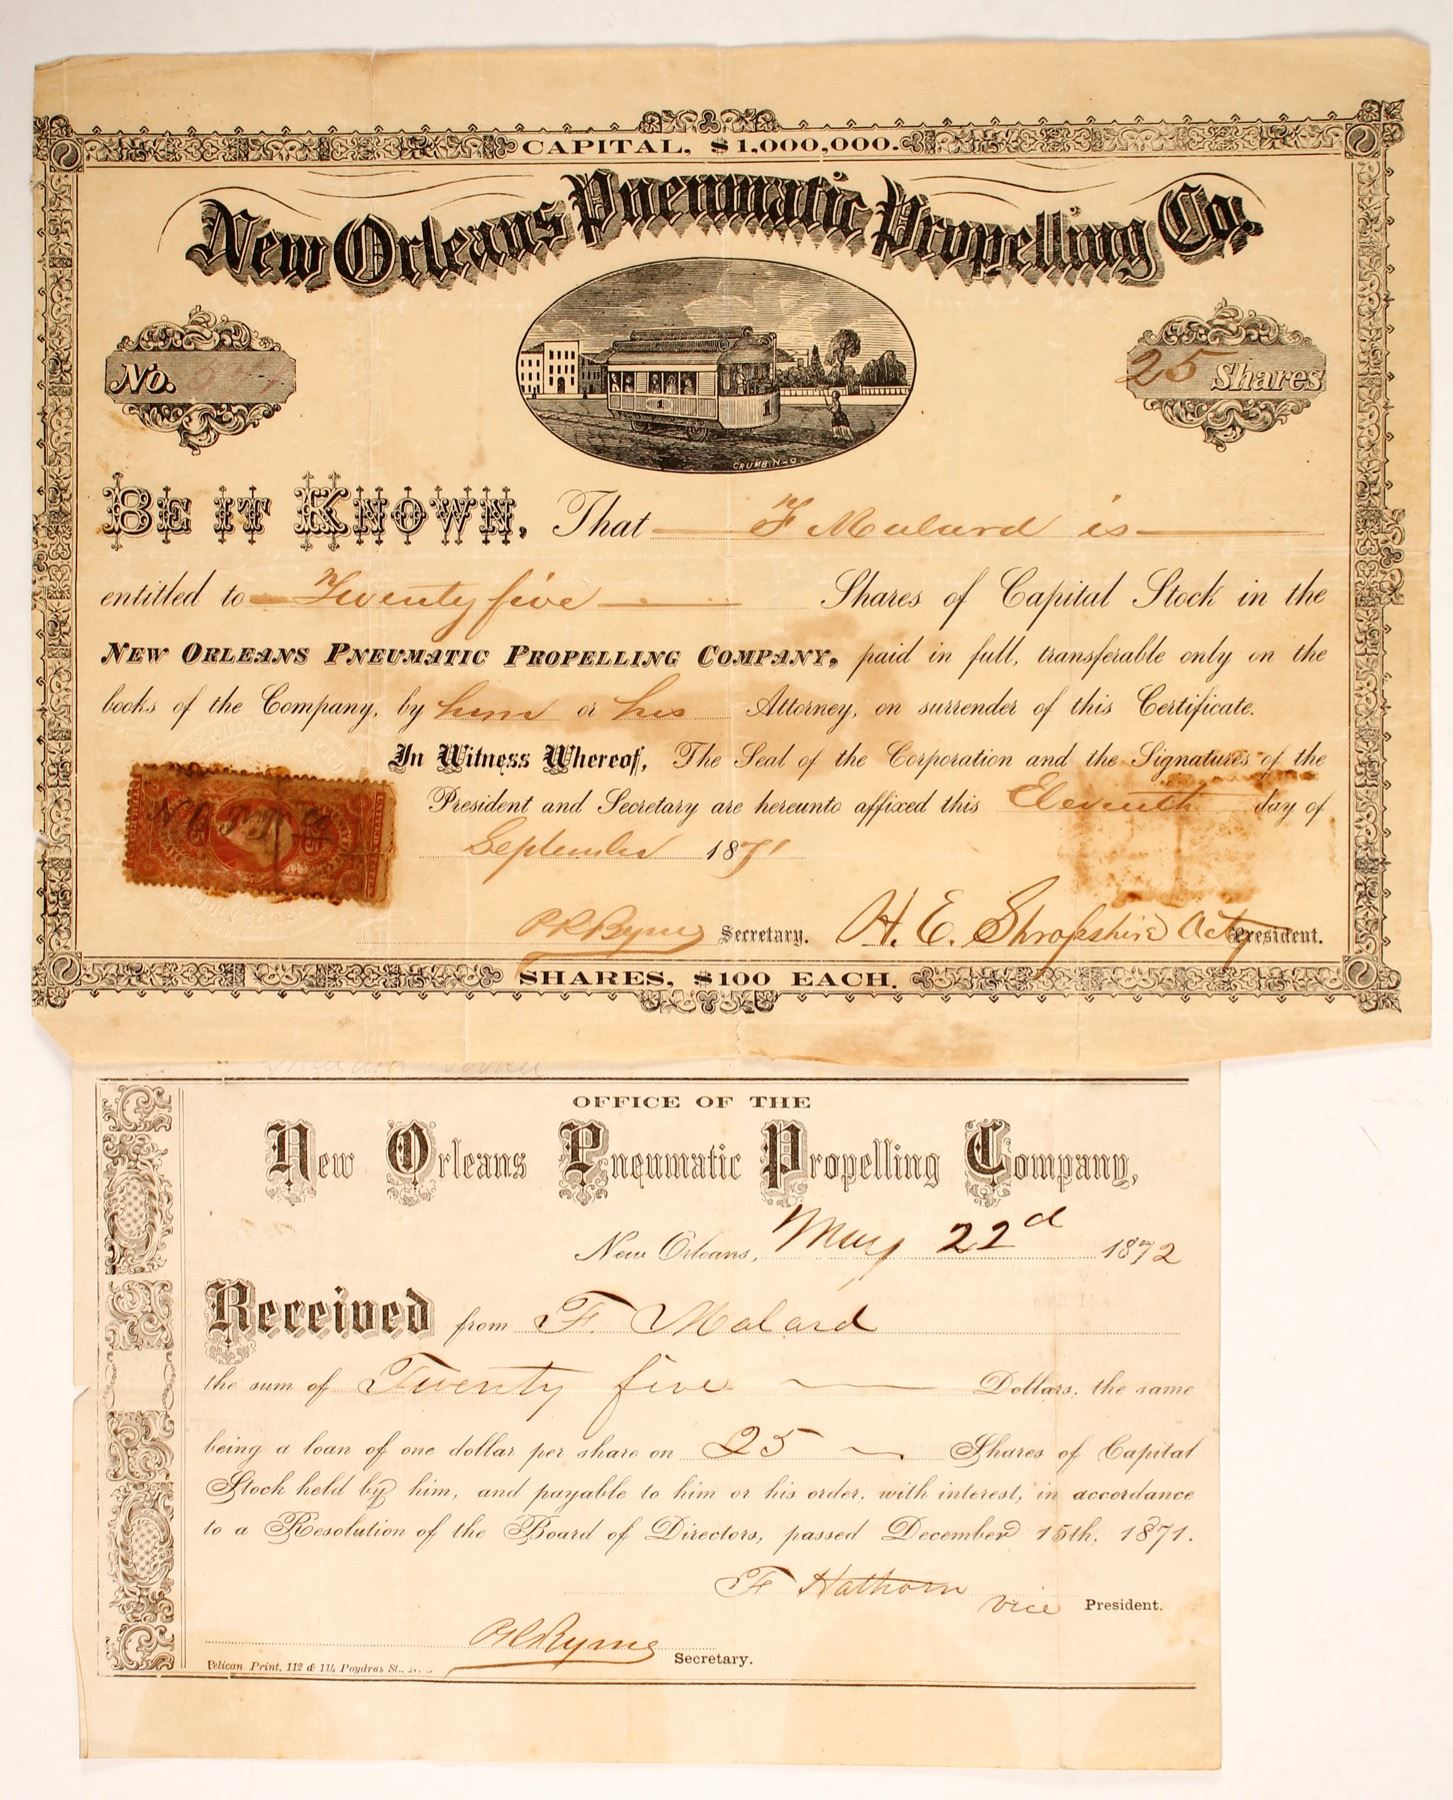 CAPITAL, $1,000,000.
New Orleans Pneumatic Propelling Co.
No.
25 Shares
1 1
CRUMB. N-O.
BE IT KNOWN, That F Malard is
entitled to Twenty five Shares of Capital Stock in the
NEW ORLEANS PNEUMATIC PROPELLING COMPANY, paid in full, transferable only on the
books of the Company, by him or his Attorney, on surrender of this Certificate.
In Witness Whereof, The Seal of the Corporation and the Signatures of the
President and Secretary are hereunto affixed this Eleventh day of
September 1871
P R Byrne Secretary. H. E. Shropshire Actg President.
SHARES, $100 EACH.
OFFICE OF THE
New Orleans Pneumatic Propelling Company,
New Orleans, May 22d 1872
Received from F. Malard
the sum of Twenty five Dollars, the same
being a loan of one dollar per share on 25 Shares of Capital
Stock held by him, and payable to him or his order, with interest, in accordance
to a Resolution of the Board of Directors, passed December 15th, 1871.
F Hathorn vice President.
P R Byrne Secretary.
Pelican Print, 112 & 114 Poydras St.